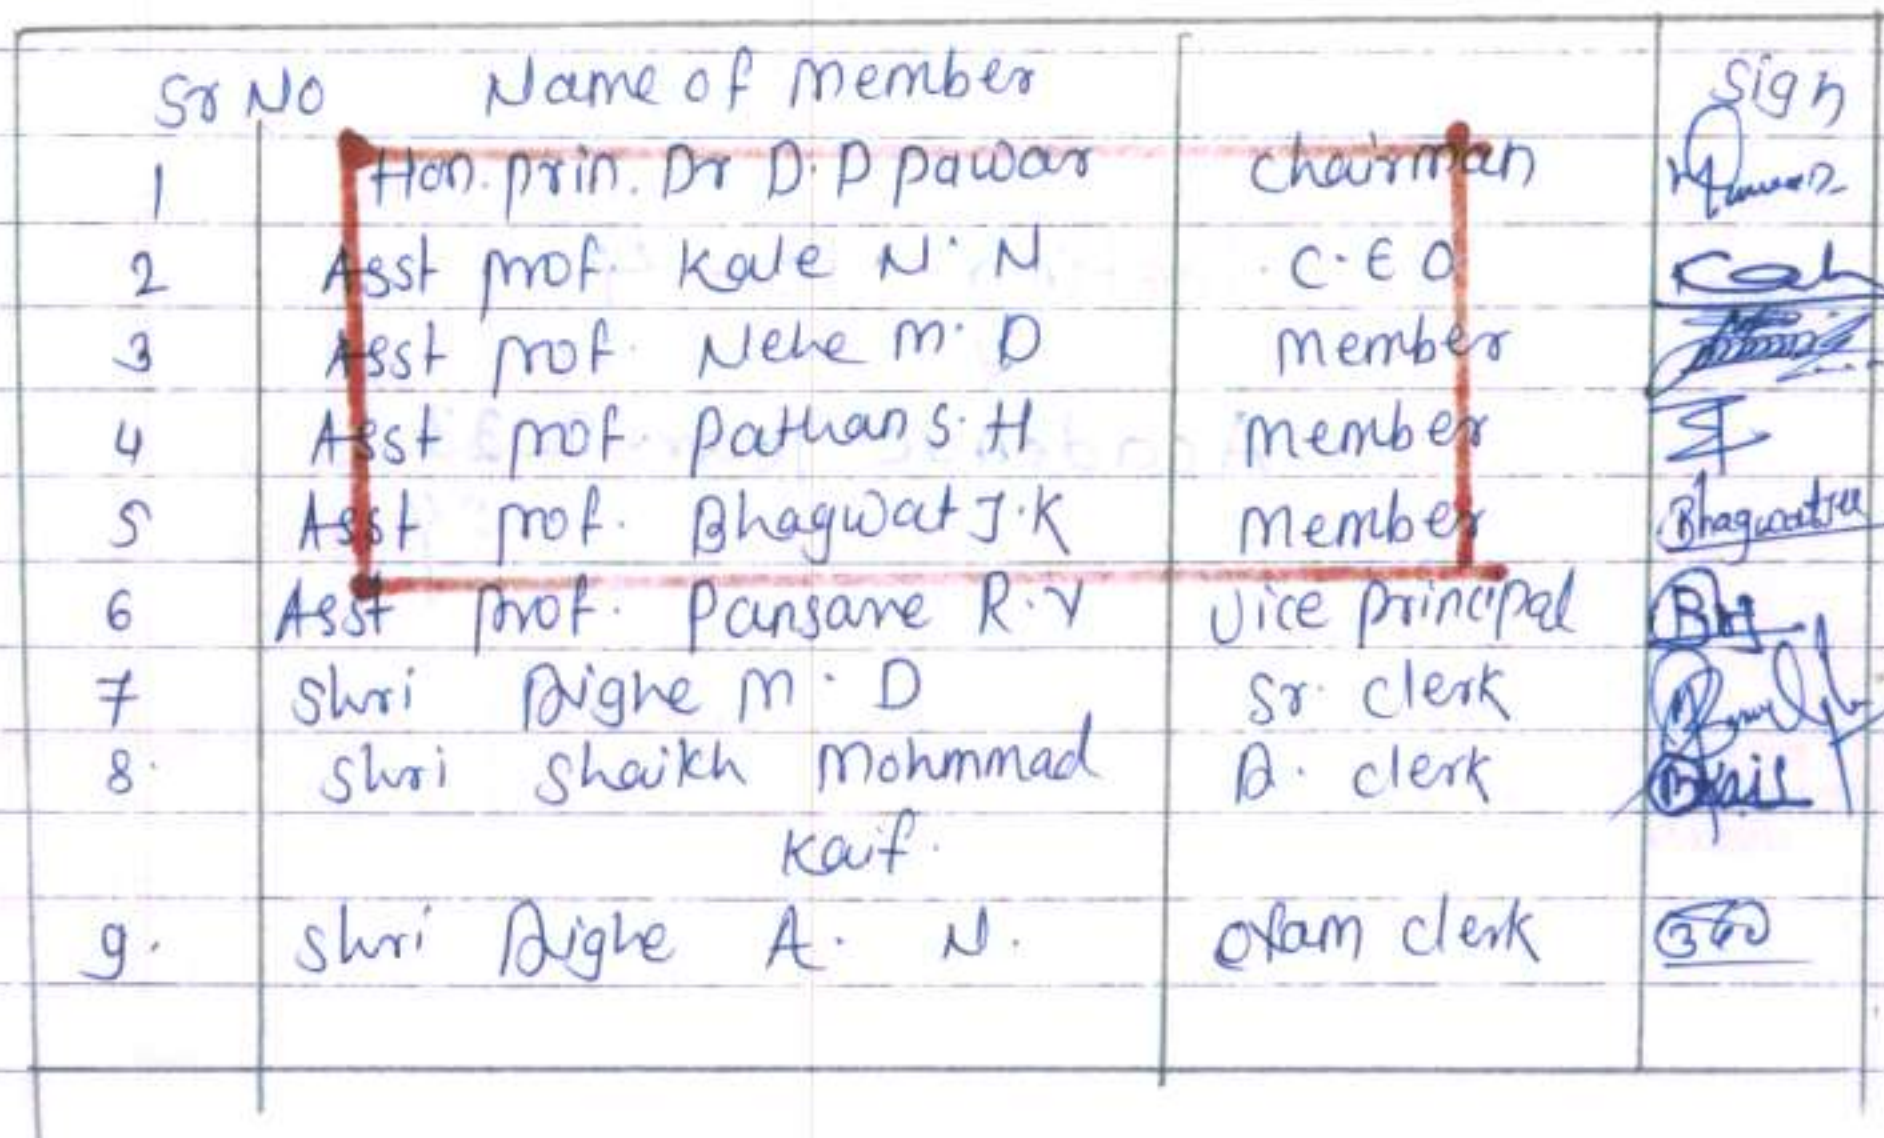 Sr No Name of Member Sign
1 Hon. prin. Dr D. D pawar chairman
2 Asst prof. Kale N. N C.E O
3 Asst prof. Nehe M. D Member
4 Asst prof. Pathan S. H Member
5 Asst prof. Bhagwat J.K Member Bhagwat
6 Asst prof. Pansare R. V vice principal
7 Shri Dighe M. D Sr. clerk
8. Shri Shaikh Mohmmad D. clerk
Kaif.
9. Shri Dighe A. N. exam clerk